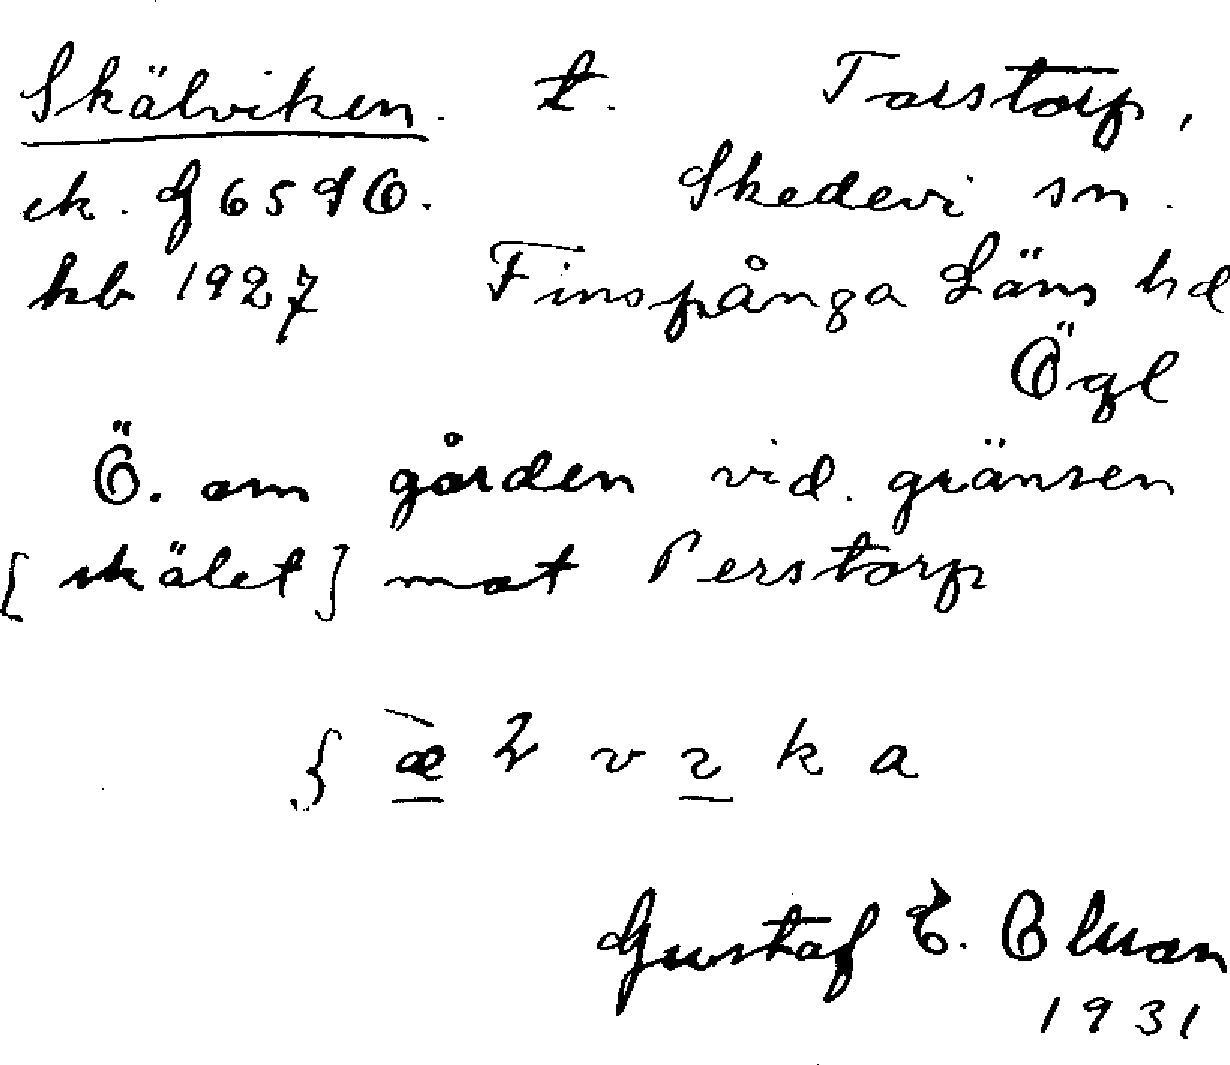 Skälviken. t. Torstorp,
ek. G 65 SO. Skedevi sn.
hb 1927 Finspånga Läns hd
Ögl
Ö. om gården vid gränsen
[skälet] mot Perstorp
k a
Gustaf E.
1931